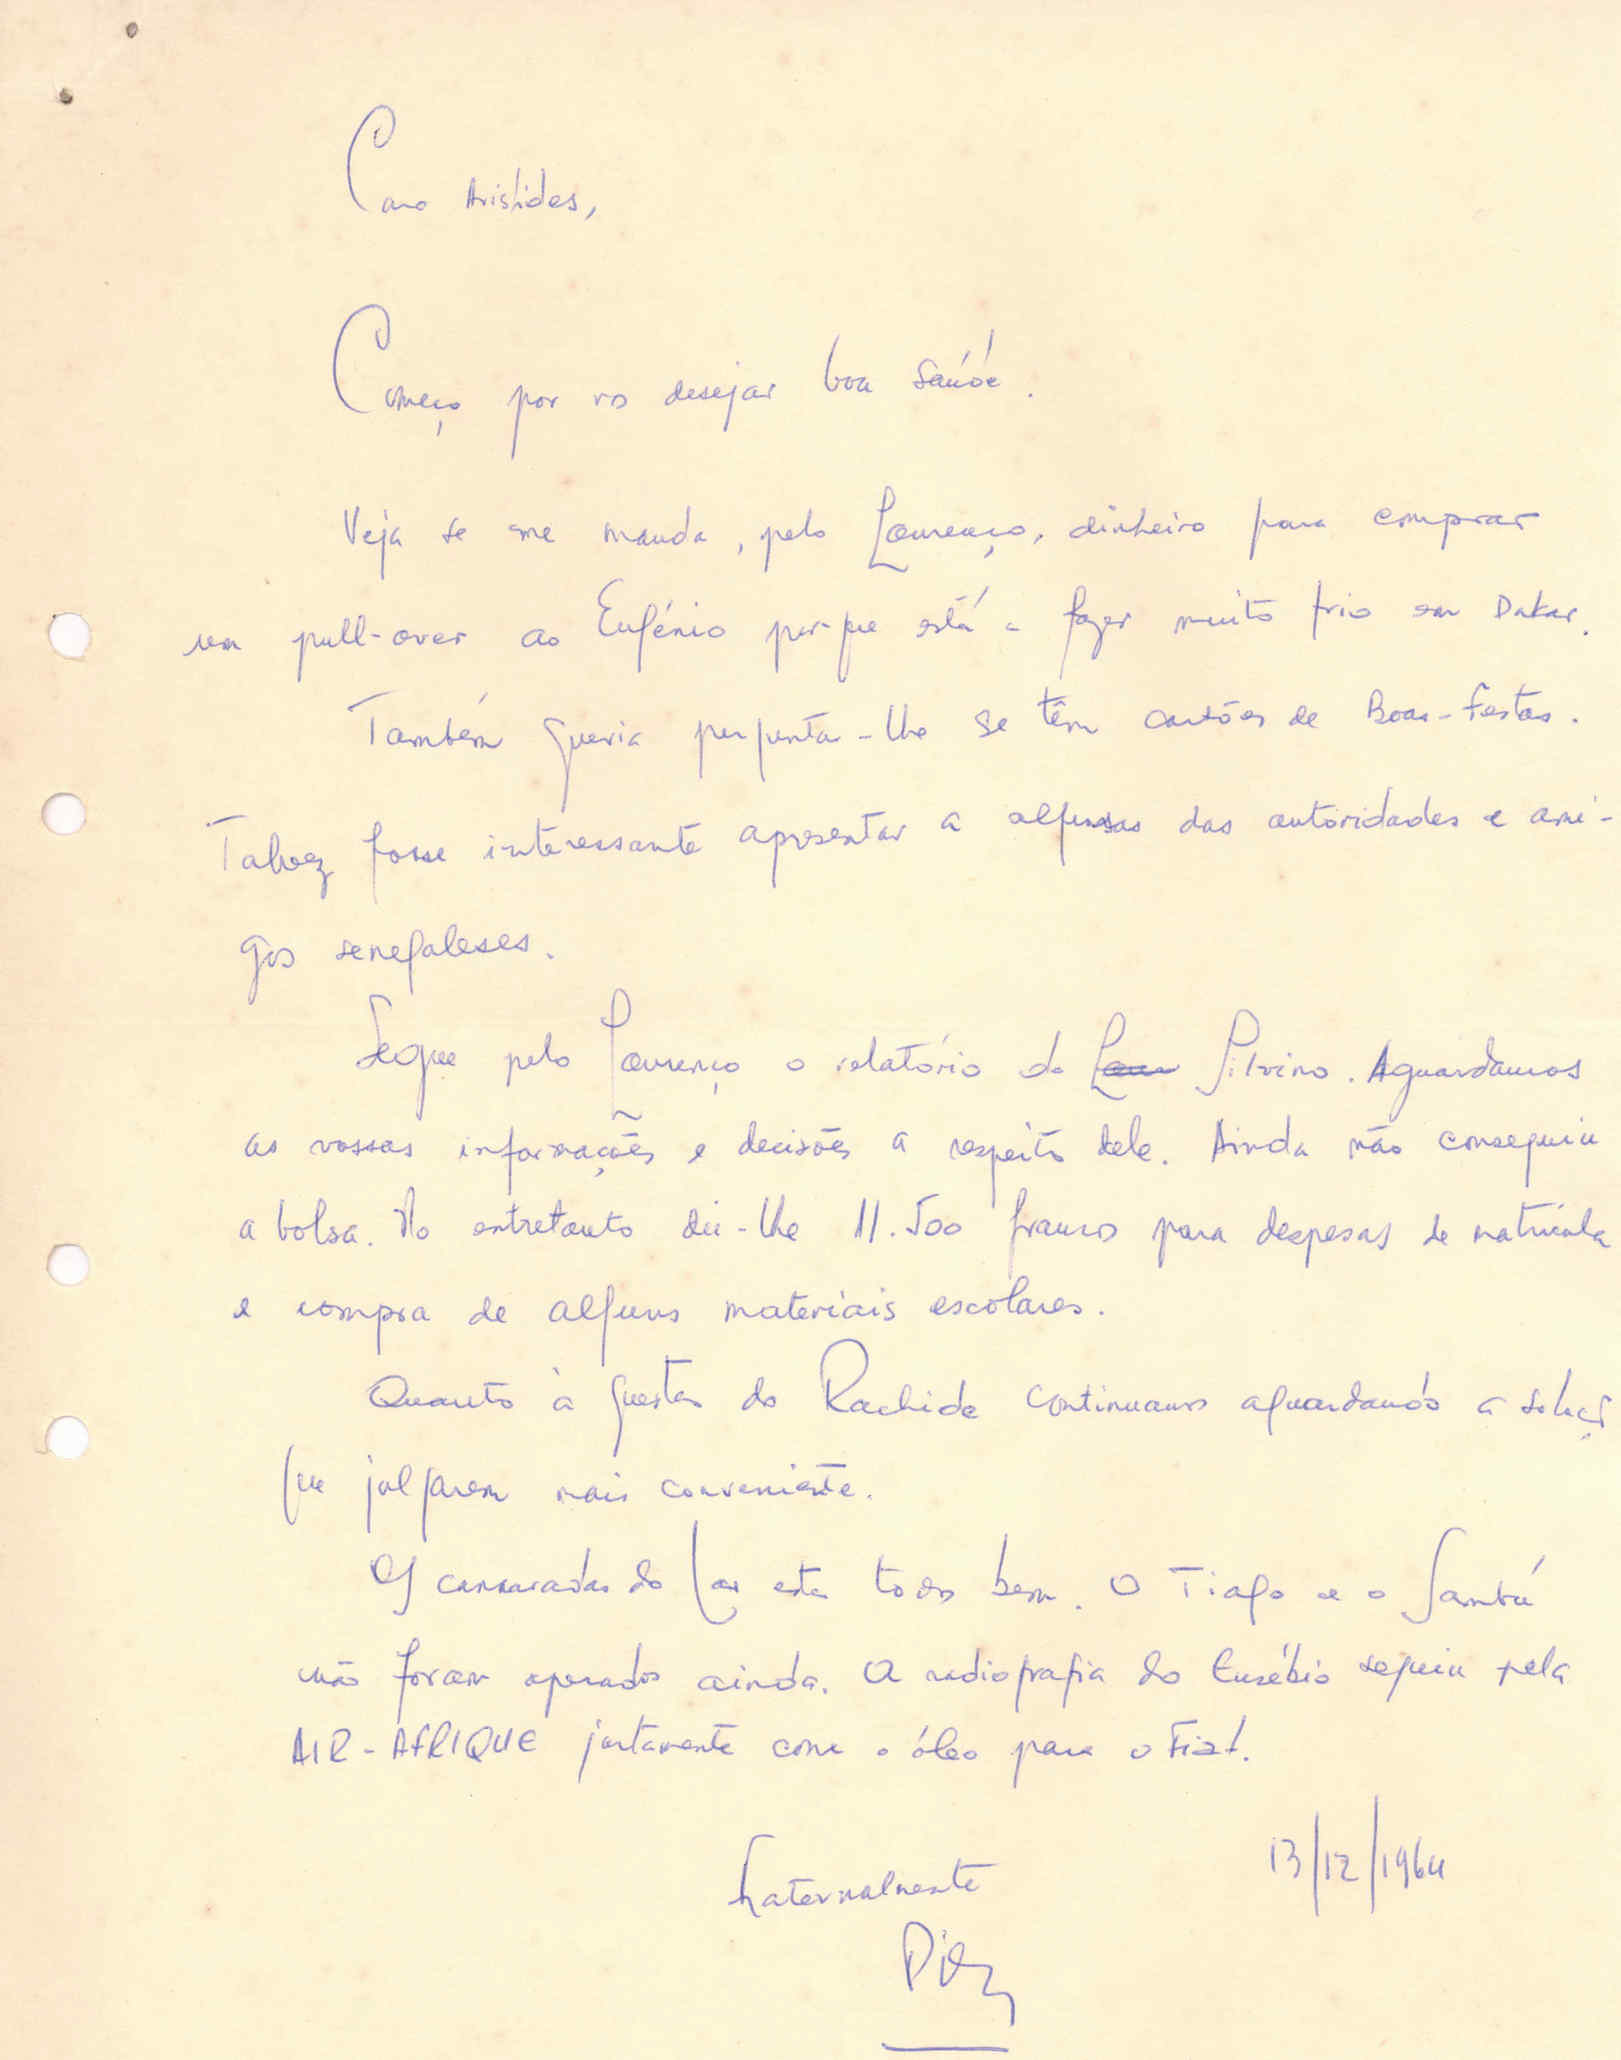 Caro Aristides,
Começo por vos desejar boa saúde.
Veja se me manda, pelo Lourenço, dinheiro para comprar
um pull-over ao Eugénio porque está a fazer muito frio em Dakar.
Também queria perguntar-lhe se têm cartões de Boas-Festas.
Talvez fosse interessante apresentar a algumas das autoridades e ami-
gos senegaleses.
Segue pelo Lourenço o relatório do Silvino. Aguardamos
as vossas informações e decisões a respeito dele. Ainda não conseguiu
a bolsa. No entretanto dei-lhe 11.500 francos para despesas de matrícula
e compra de alguns materiais escolares.
Quanto à questão do Rachide continuamos aguardando a solução
que julgarem mais conveniente.
Os camaradas do Lar estão todos bem. O Tiago e o Sambú
não foram operados ainda. A radiografia do Eusébio seguiu pela
AIR-AFRIQUE juntamente com o óleo para o Fiat.
Fraternalmente
13/12/1964